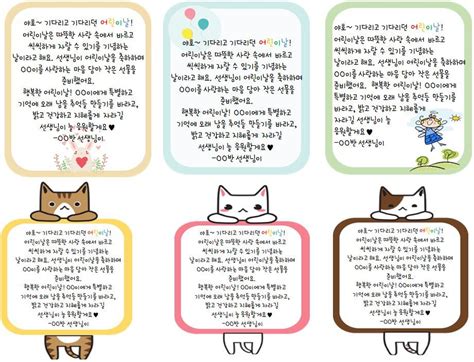 야호~ 기다리고 기다리던 어린이날!
어린이날은 따뜻한 사랑 속에서 바르고
씩씩하게 자랄 수 있기를 기념하는
날이라고 해요. 선생님이 어린이날을 축하하며
OO이를 사랑하는 마음 담아 작은 선물을
준비했어요.
행복한 어린이날! OO이에게 특별하고
기억에 오래 남을 추억을 만들기를 바라고,
밝고 건강하고 지혜롭게 자라길
선생님이 늘 응원할게요♥
-OO반 선생님이
야호~ 기다리고 기다리던 어린이날!
어린이날은 따뜻한 사랑 속에서 바르고
씩씩하게 자랄 수 있기를 기념하는
날이라고 해요. 선생님이 어린이날을 축하하며
OO이를 사랑하는 마음 담아 작은 선물을
준비했어요.
행복한 어린이날! OO이에게 특별하고
기억에 오래 남을 추억을 만들기를 바라고,
밝고 건강하고 지혜롭게 자라길
선생님이 늘 응원할게요♥
-OO반 선생님이
야호~ 기다리고 기다리던 어린이날!
어린이날은 따뜻한 사랑 속에서 바르고
씩씩하게 자랄 수 있기를 기념하는
날이라고 해요. 선생님이 어린이날을 축하하며
OO이를 사랑하는 마음 담아 작은 선물을
준비했어요.
행복한 어린이날! OO이에게 특별하고
기억에 오래 남을 추억을 만들기를 바라고,
밝고 건강하고 지혜롭게 자라길
선생님이 늘 응원할게요♥
-OO반 선생님이
야호~ 기다리고 기다리던 어린이날!
어린이날은 따뜻한 사랑 속에서 바르고
씩씩하게 자랄 수 있기를 기념하는
날이라고 해요. 선생님이 어린이날을 축하하며
OO이를 사랑하는 마음 담아 작은 선물을
준비했어요.
행복한 어린이날! OO이에게 특별하고
기억에 오래 남을 추억을 만들기를 바라고,
밝고 건강하고 지혜롭게 자라길
선생님이 늘 응원할게요♥
-OO반 선생님이
야호~ 기다리고 기다리던 어린이날!
어린이날은 따뜻한 사랑 속에서 바르고
씩씩하게 자랄 수 있기를 기념하는
날이라고 해요. 선생님이 어린이날을 축하하며
OO이를 사랑하는 마음 담아 작은 선물을
준비했어요.
행복한 어린이날! OO이에게 특별하고
기억에 오래 남을 추억을 만들기를 바라고,
밝고 건강하고 지혜롭게 자라길
선생님이 늘 응원할게요♥
-OO반 선생님이
야호~ 기다리고 기다리던 어린이날!
어린이날은 따뜻한 사랑 속에서 바르고
씩씩하게 자랄 수 있기를 기념하는
날이라고 해요. 선생님이 어린이날을 축하하며
OO이를 사랑하는 마음 담아 작은 선물을
준비했어요.
행복한 어린이날! OO이에게 특별하고
기억에 오래 남을 추억을 만들기를 바라고,
밝고 건강하고 지혜롭게 자라길
선생님이 늘 응원할게요♥
-OO반 선생님이